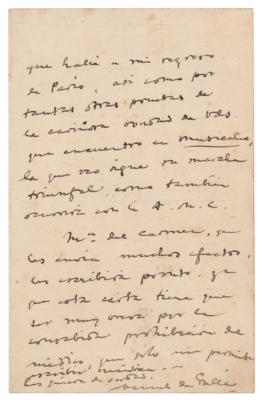 que hallé a mi regreso
de París, así como por
tantas otras pruebas de
la cariñosa bondad de Vds.
que encuentro en musicalia,
la que veo sigue su marcha
triunfal, como también
ocurrirá con la A. M. C.
Mª del Carmen, que
les envía muchos afectos,
les escribirá pronto, ya
que esta carta tiene que
ser muy breve por la
consabida prohibición de
médico, que sólo me permite
escribir
les quiere de verdad.
Manuel de Falla